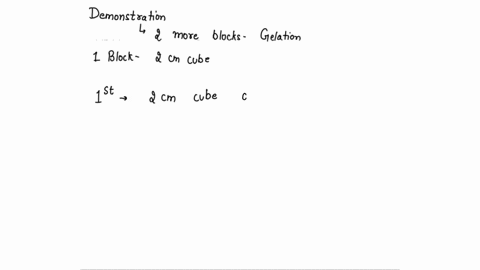 Demonstration
↳ 2 more blocks- Gelation
1 Block- 2 cm cube
1st → 2 cm cube c